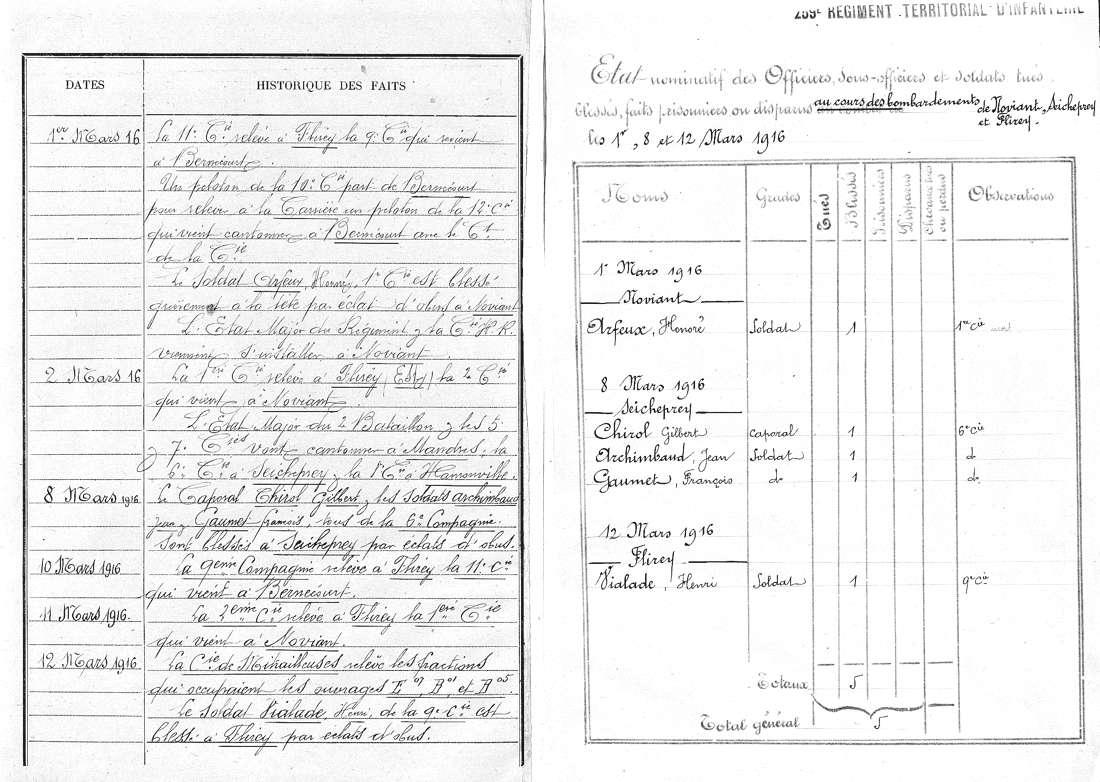 DATES
HISTORIQUE DES FAITS
1er Mars 16
La 11e Cie relève à Flirey la 9e Cie qui revient
à Bernécourt.
Un peloton de la 10e Cie part de Bernécourt
pour relever à la Carrière un peloton de la 12e Cie
qui vient cantonner à Bernécourt avec le Ct
de la Cie
Le Soldat Arfeux, Honoré, 1e Cie est blessé
grièvement à la tête par éclat d'obus à Noviant
L'Etat Major du Régiment & la Cie H.R.
viennent s'installer à Noviant.
2 Mars 16
La 1ère Cie relève à Flirey (Est) la 2e Cie
qui vient à Noviant.
L'Etat Major du 2e Bataillon & les 5e
& 7e Cies vont cantonner à Mandres, la
6e Cie à Seicheprey, la 8e Cie à Hamonville.
8 Mars 1916
Le Caporal Chirol Gilbert & les Soldats Archimbaud
Jean & Gaumet françois, tous de la 6e Compagnie.
sont blessés à Seicheprey par éclats d'obus.
10 Mars 1916
La 9ème Compagnie relève à Flirey la 11e Cie
qui vient à Bernécourt.
11 Mars 1916.
La 2ème Cie relève à Flirey la 1ère Cie
qui vient à Noviant.
12 Mars 1916
La Cie de Mitrailleuses relève les fractions
qui occupaient les ouvrages
Le Soldat Vialade, Henri, de la 9e Cie est
blessé à Flirey par éclats d'obus.
259e REGIMENT TERRITORIAL D'INFANTERIE
Etat nominatif des Officiers, sous-officiers et soldats tués,
blessés, faits prisonniers ou disparus au cours des bombardements de Noviant, Seicheprey
et Flirey.
les 1er, 8 et 12 Mars 1916
Noms
Grades
Tués
Blessés
Prisonniers
Disparus
Chevaux tués
ou perdus
Observations
1er Mars 1916
Noviant
Arfeux, Honoré Soldat 1 1re Cie
8 Mars 1916
Seicheprey
Chirol Gilbert Caporal 1 6e Cie
Archimbaud, Jean Soldat 1 d
Gaumet, François do 1 do
12 Mars 1916
Flirey
Vialade, Henri Soldat 1 9e Cie
Totaux 5
Total général 5